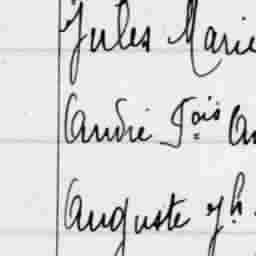 Jules Marie
André Fois
Auguste Jh.